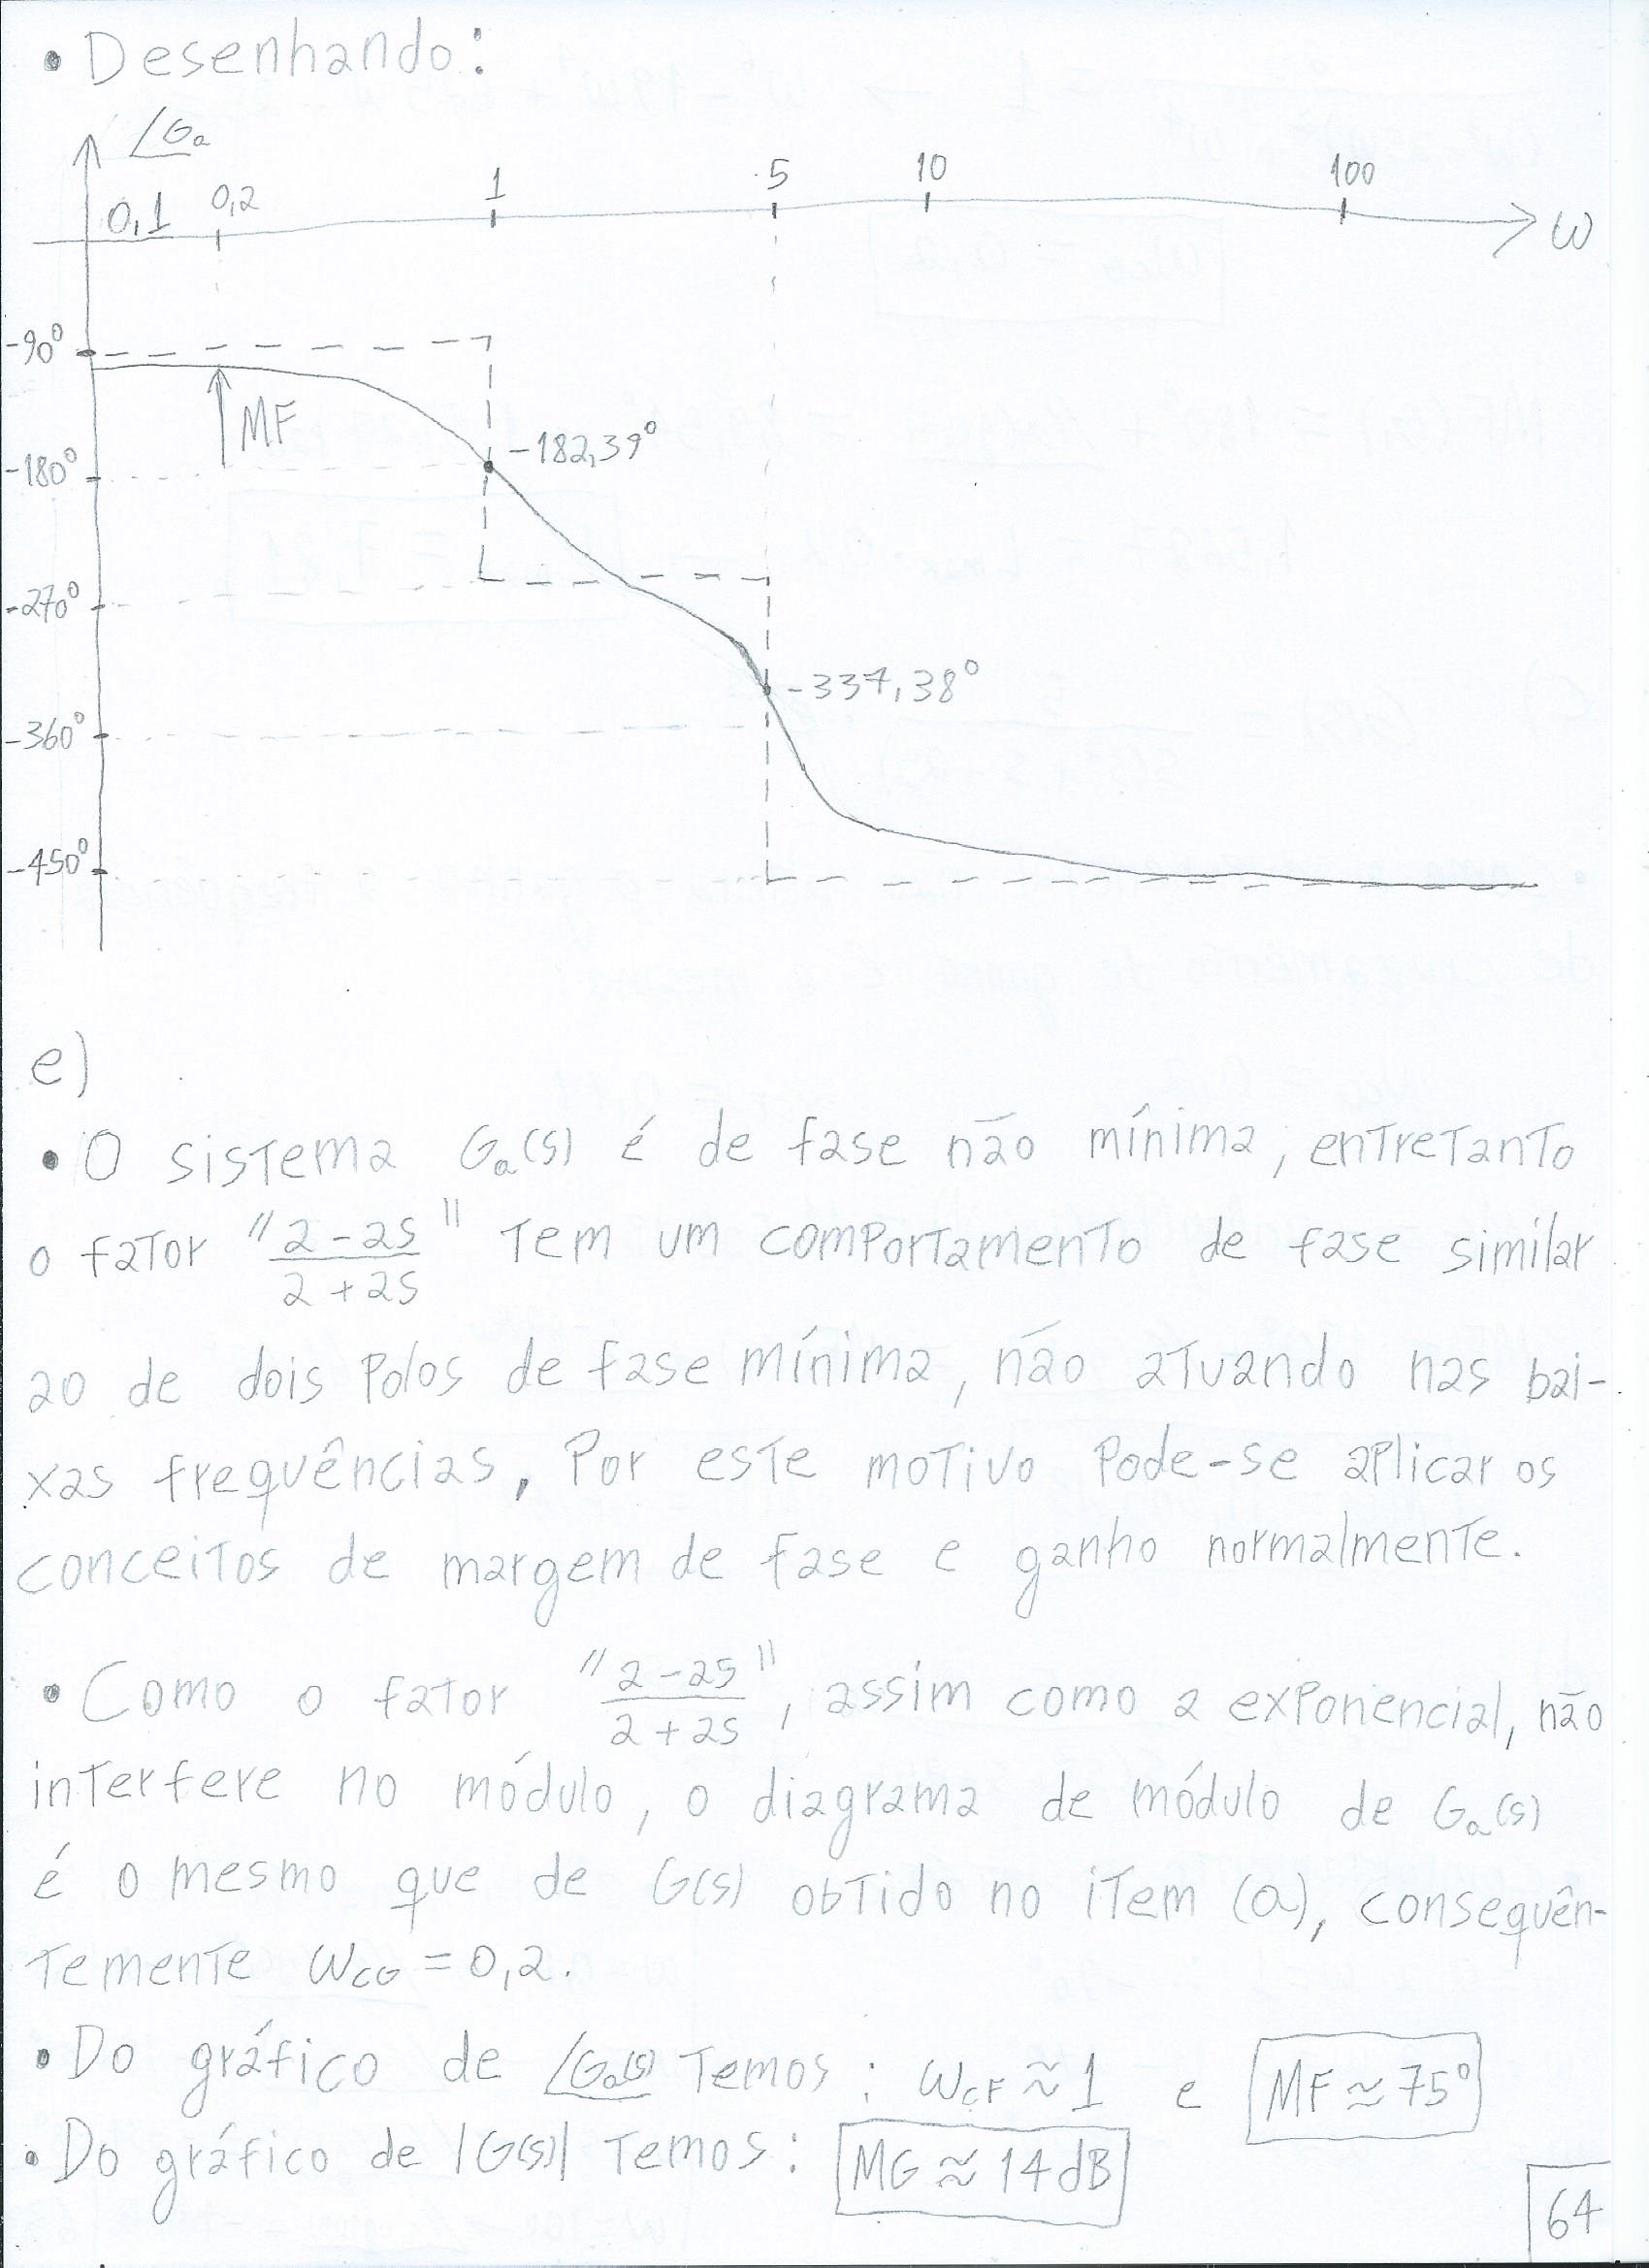 • Desenhando:
∠Ga
0,1 0,2 1 5 10 100 ω
-90°
MF
-182,39°
-180°
-270°
-337,38°
-360°
-450°
e)
• O sistema Ga(s) é de fase não mínima, entretanto
o fator "(2-2s)/(2+2s)" tem um comportamento de fase similar
ao de dois polos de fase mínima, não atuando nas bai-
xas frequências, Por este motivo pode-se aplicar os
conceitos de margem de fase e ganho normalmente.
• Como o fator "(2-2s)/(2+2s)", assim como a exponencial, não
interfere no módulo, o diagrama de módulo de Ga(s)
é o mesmo que de G(s) obtido no item (a), consequên-
temente ωCG = 0,2.
• Do gráfico de ∠Ga(s) temos: ωCF ≈ 1 e MF ≈ 75°
• Do gráfico de |G(s)| temos: MG ≈ 14 dB
64